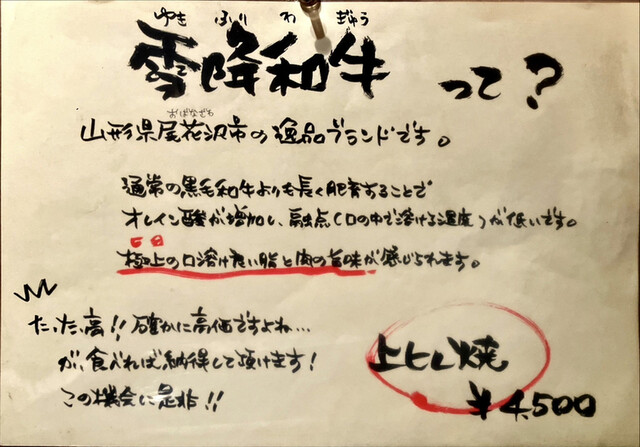 ゆき ふり わ ぎゅう
雪降和牛 って?
おばなざわ
山形県尾花沢市の逸品ブランドです。
通常の黒毛和牛よりも長く肥育することで
オレイン酸が増加し、融点(口の中で溶ける温度)が低いです。
極上の口溶け良い脂と肉の旨味が感じられます。
たったっ高!!確かに高価ですよね…
が、食べれば納得して頂けます!
この機会に是非!!
上ヒレ焼
¥4,500